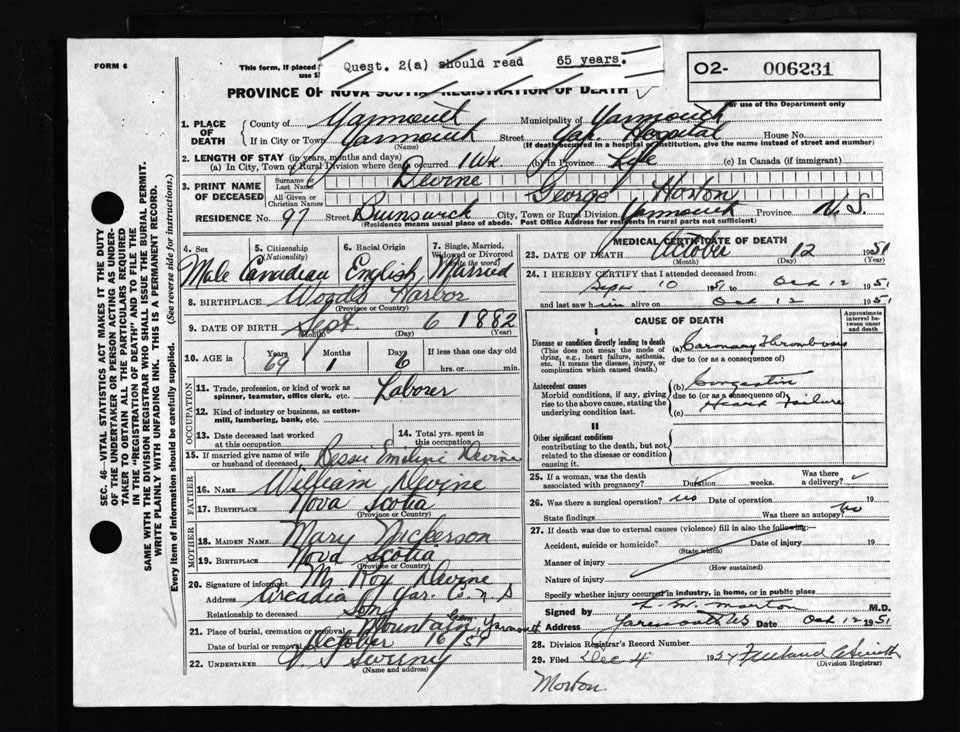 FORM 6
This form, if placed
use S
Quest. 2(a) should read 65 years.
O2- 006231
For use of the Department only
PROVINCE OF NOVA SCOTIA REGISTRATION OF DEATH
SEC. 46 VITAL STATISTICS ACT MAKES IT THE DUTY
OF THE UNDERTAKER OR PERSON ACTING AS UNDER-
TAKER TO OBTAIN ALL THE PARTICULARS REQUIRED
IN THE "REGISTRATION OF DEATH" AND TO FILE THE
SAME WITH THE DIVISION REGISTRAR WHO SHALL ISSUE THE BURIAL PERMIT.
WRITE PLAINLY WITH UNFADING INK. THIS IS A PERMANENT RECORD.
Every item of information should be carefully supplied. (See reverse side for instructions.)
1. PLACE OF DEATH
County of Yarmouth Municipality of Yarmouth
If in City or Town Yarmouth Street Yar Hospital House No.
(Name) (If death occurred in a hospital or institution, give the name instead of street and number)
2. LENGTH OF STAY (in years, months and days)
(a) In City, Town or Rural Division where death occurred 1 Wk (b) in Province Life (c) In Canada (if immigrant)
3. PRINT NAME OF DECEASED
Surname or Last Name Devine
All Given or Christian Names George Horton
RESIDENCE No. 97 Street Brunswick City, Town or Rural Division Yarmouth Province N.S.
(Residence means usual place of abode. Post Office Address for residents in rural parts not sufficient)
4. Sex Male
5. Citizenship (Nationality) Canadian
6. Racial Origin English
7. Single, Married, Widowed or Divorced (write the word) Married
8. BIRTHPLACE Woods Harbor
(Province or Country)
9. DATE OF BIRTH Sept 6 1882
(Month) (Day) (Year)
10. AGE in Years 69 Months 1 Days 6 If less than one day old
hrs. or min.
OCCUPATION
11. Trade, profession, or kind of work as spinner, teamster, office clerk, etc. Laborer
12. Kind of industry or business, as cotton-mill, lumbering, bank, etc.
13. Date deceased last worked at this occupation
14. Total yrs. spent in this occupation
15. If married give name of wife or husband of deceased Bessie Emeline Devine
FATHER
16. NAME William Devine
17. BIRTHPLACE Nova Scotia
(Province or Country)
MOTHER
18. MAIDEN NAME Mary Nickerson
19. BIRTHPLACE Nova Scotia
(Province or Country)
20. Signature of informant Mr Roy Devine
Address Arcadia Yar. Co. N.S
Relationship to deceased Son
21. Place of burial, cremation or removal Mountain Cem Yarmouth
Date of burial or removal October 16 '51
22. UNDERTAKER V. S. Sweeny
(Name and address)
MEDICAL CERTIFICATE OF DEATH
23. DATE OF DEATH October 12 1951
(Month) (Day) (Year)
24. I HEREBY CERTIFY that I attended deceased from:
Sept 10 1951 to Oct 12 1951
and last saw him alive on Oct 12 1951
CAUSE OF DEATH
Approximate interval between onset and death
I
Disease or condition directly leading to death (a) Coronary Thrombosis
(This does not mean the mode of dying, e.g., heart failure, asthenia, etc. It means the disease, injury, or complication which caused death.)
due to (or as a consequence of)
Antecedent causes (b) Congestive
Morbid conditions, if any, giving rise to the above cause, stating the underlying condition last.
due to (or as a consequence of) Heart Failure
(c)
II
Other significant conditions contributing to the death, but not related to the disease or condition causing it.
25. If a woman, was the death associated with pregnancy? Duration weeks. Was there a delivery?
26. Was there a surgical operation? no Date of operation 19
State findings Was there an autopsy? no
27. If death was due to external causes (violence) fill in also the following:
Accident, suicide or homicide? Date of injury 19
(State which)
Manner of injury
(How sustained)
Nature of injury
Specify whether injury occurred in industry, in home, or in public place
Signed by L. M. Morton M.D.
Address Yarmouth NS Date Oct 12 1951
28. Division Registrar's Record Number
29. Filed Dec 4 1951
(Division Registrar)
Morton.